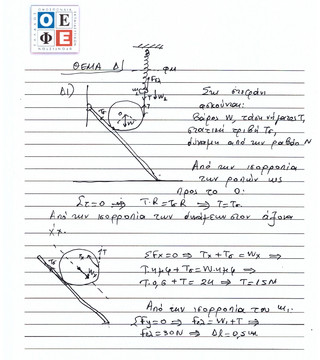 ΟΕΦΕ
ΘΕΜΑ Δ
Δ1)
Στη στεφάνη
ασκούνται:
βάρος W, τάση νήματος Τ,
στατική τριβή Τσ,
δύναμη από την ράβδο Ν
Από την ισορροπία
των ροπών ως
προς το Ο.
Στ=0 ⇒ T·R=Tσ·R ⇒ T=Tσ.
Από την ισορροπία των δυνάμεων στον άξονα
χ'χ.
ΣFx=0 ⇒ Tx+Tσ=Wx ⇒
T·ημφ+Tσ=W·ημφ ⇒
T·0,6+T=24 ⇒ T=15N
Από την ισορροπία του m₁.
ΣFy=0 ⇒ Fελ=W₁+T ⇒
Fελ=30N ⇒ Δl=0,5m